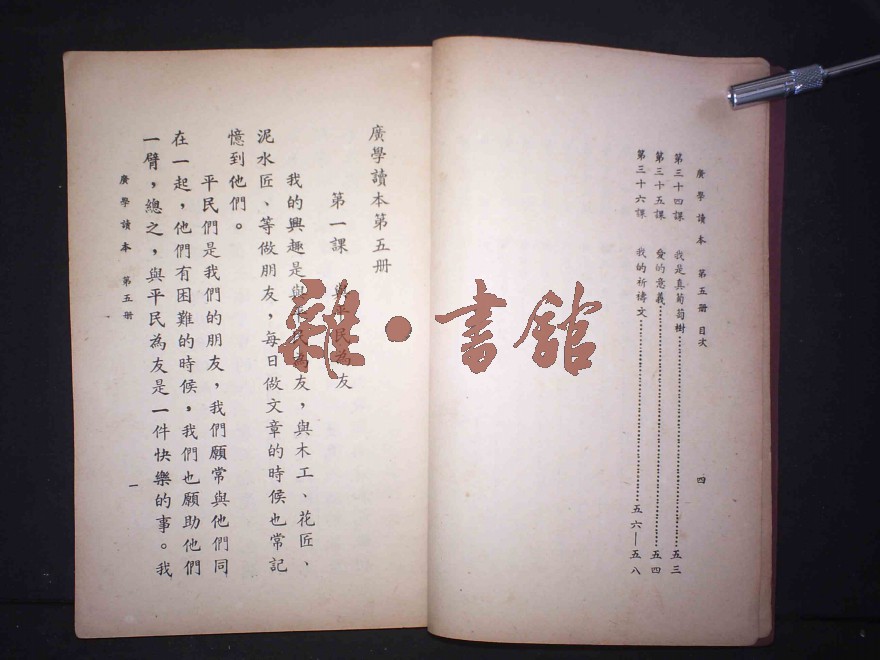 廣學讀本 第五册 目次 四
第三十四課 我是真葡萄樹……五三
第三十五課 愛的意義……五四
第三十六課 我的祈禱文……五六—五八
廣學讀本第五册
第一課 與平民為友
我的興趣是與平民為友，與木工、花匠、
泥水匠、等做朋友，每日做文章的時候也常記
憶到他們。
平民們是我們的朋友，我們願常與他們同
在一起，他們有困難的時候，我們也願助他們
一臂，總之，與平民為友是一件快樂的事。我
廣學讀本 第五册 一
雜·書館